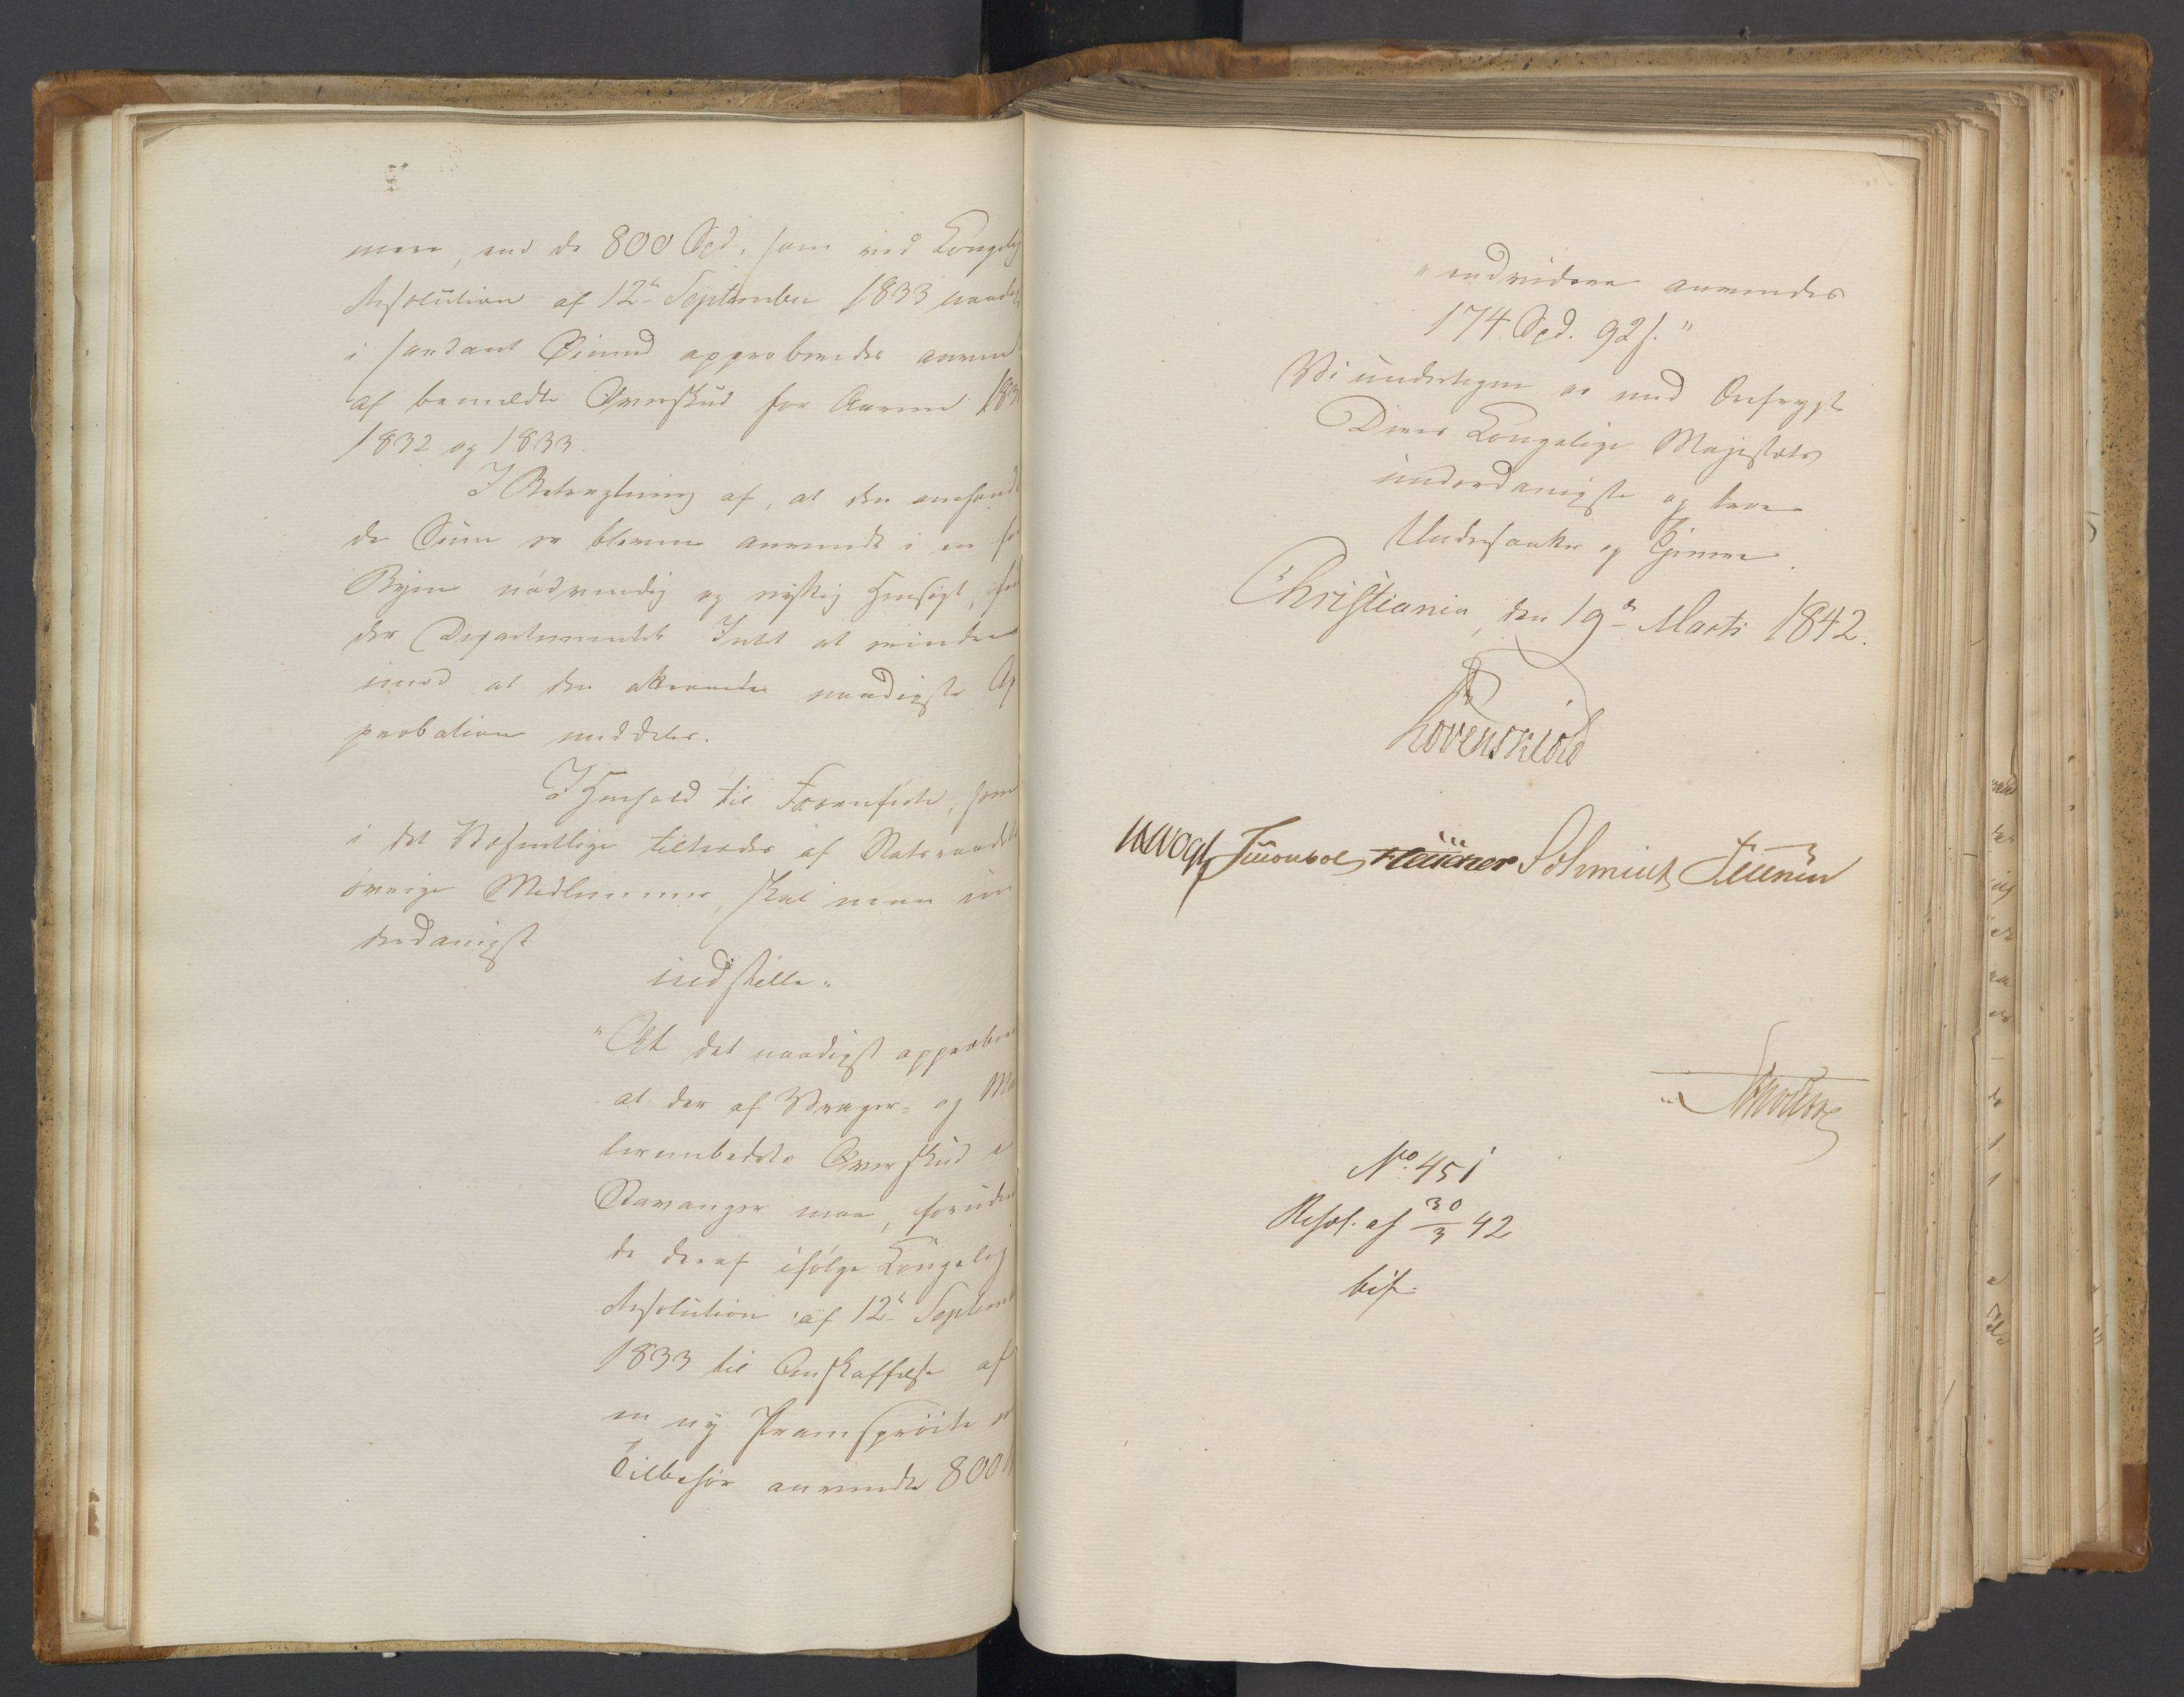 mere, end de 800 Spd. som ved Kongelig
Resolution af 12te September 1833 naadigst
i saadant Øiemed approberedes anvendt
af bemeldte Overskud for Aarene
1832 og 1833.
I Betragtning af, at den omhand
de Sum er bleven anvendt i en for
Byen nødvendig og nyttig Hensigt,
der Departementet Intet at erindre
imod at den attraaede naadigste Ap
probation meddeles.
I Henhold til Foranførte, som
i det Væsentlige tiltrædes af Statsraadets
øvrige Medlemmer, skal man un
derdanigst
indstille:
"At det naadigst approberes
at der af Vrager- og Maa
lerembedets Overskud i
Stavanger maa, foruden
de deraf ifølge Kongelig
Resolution af 12te September
1833 til Anskaffelse af
en ny Pramsprøite med
Tilbehør anvendte 800
"endvidere anvendes
174 Spd. 92 s."
Vi undertegne os med Ærefrygt
Deres Kongelige Majestæts
underdanigste og troe
Undersaatter og Tjenere.
Christiania, den 19de Marts 1842.
Løvenskiold
Vogt Schmidt
No. 451
Resol. af 30/3 42
bif.